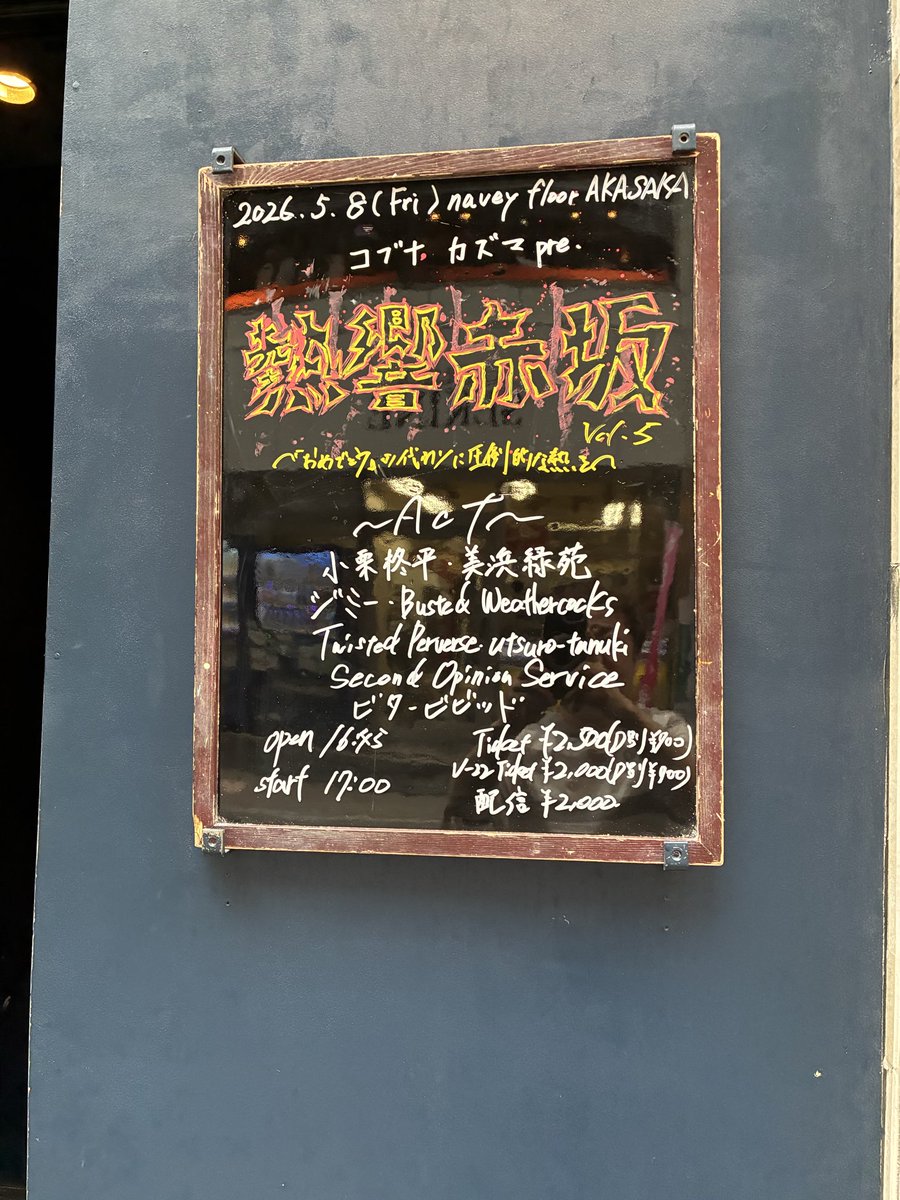 2026.5.8(Fri) navey floor AKASAKA
コブナ カズマ pre.
熱響赤坂
Vol.5
〜「おめでとう」の代わりに圧倒的な熱を〜
〜Act〜
小栗柊平・美浜緑苑
ジミー・Busted Weathercocks
Twisted Perverse・utsuro-tanuki
Second Opinion Service
ビタービビッド
open 16:45
start 17:00
Ticket ¥2,500(D別¥700)
Ticket ¥2,000(D別¥900)
配信 ¥2,000